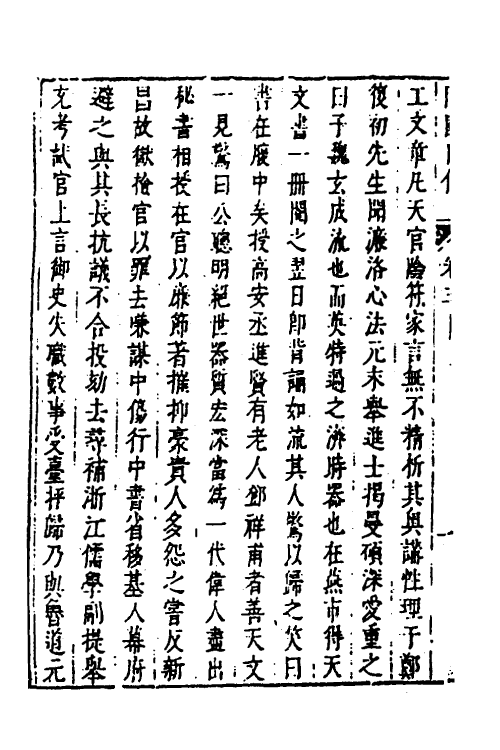 工文章凡天官陰符家言無不精析其與講性理于鄭
復初先生聞濂洛心法元末舉進士揭曼碩深愛重之
曰子魏玄成流也而英特過之濟時器也在燕市得天
文書一冊閱之翌日卽背誦如流其人驚以歸之笑曰
書在腹中矣授高安丞進賢有老人鄧祥甫者善天文
一見驚曰公聰明絕世器質宏深當爲一代偉人盡出
秘書相授在官以廉節著摧抑豪貴人多怨之嘗反新
昌故獄檢官以罪去衆謀中傷行中書省移基入幕府
避之與其長抗議不合投劾去尋補浙江儒學副提舉
充考試官上言御史失職數事受臺抨歸乃與魯道元